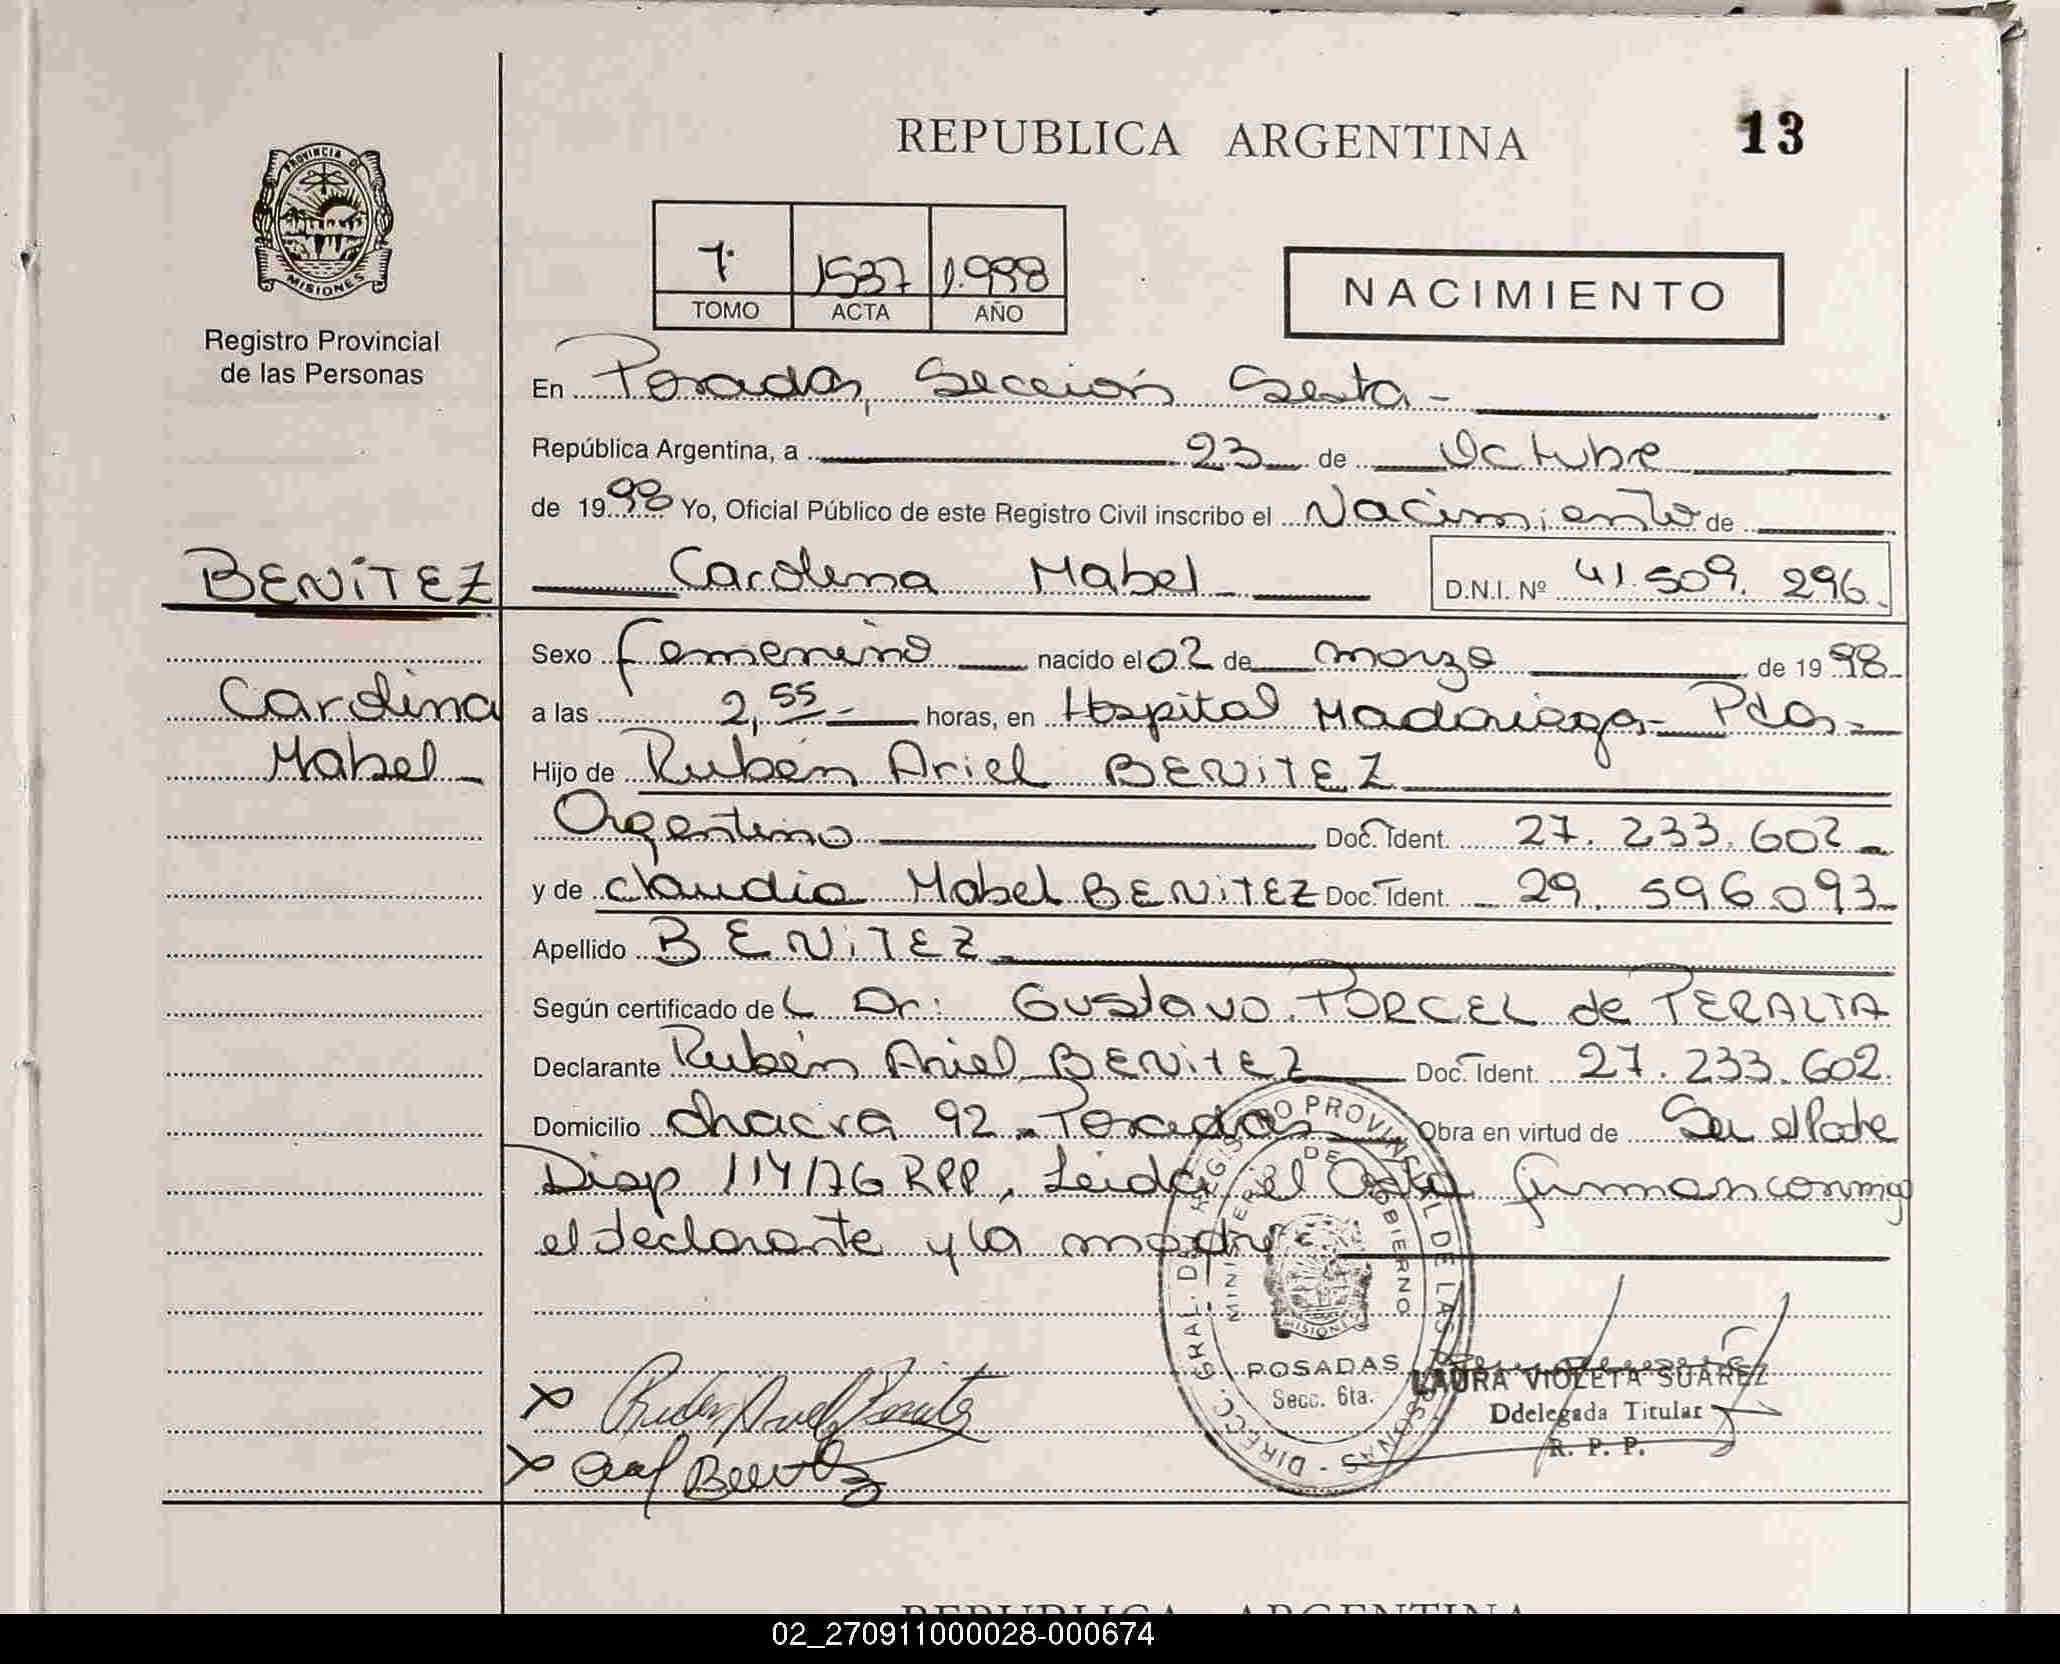 REPUBLICA ARGENTINA
13
PROVINCIA DE
MISIONES
Registro Provincial
de las Personas
7º 1537 1.998
TOMO ACTA AÑO
NACIMIENTO
En Posadas, Sección Sexta -
República Argentina, a 23 de Octubre
de 1998 Yo, Oficial Público de este Registro Civil inscribo el Nacimiento de
BENITEZ
Carolina Mabel
D.N.I. Nº 41.509.296.
Carolina
Mabel
Sexo femenino nacido el 02 de marzo de 1998.
a las 2,55 - horas, en Hospital Madariaga - Pdas -
Hijo de Rubén Ariel BENITEZ
Argentino Doc. Ident. 27.233.602 -
y de Claudia Mabel BENITEZ Doc. Ident. 29.596.093 -
Apellido BENITEZ -
Según certificado del Dr: Gustavo PORCEL de PERALTA
Declarante Rubén Ariel BENITEZ Doc. Ident. 27.233.602.
Domicilio chacra 92 - Posadas Obra en virtud de Ser el Padre
Disp 114/76 RPP, Leida el Acta firman conmigo
el declarante y la madre
DIRECC. GRAL. DEL REGISTRO PROVINCIAL DE LAS PERSONAS -
MINISTERIO DE GOBIERNO
MISIONES
POSADAS
Secc. 6ta.
x Ruben Ariel Benitez
x Benitez
LAURA VIOLETA SUAREZ
Ddelegada Titular
R. P. P.
REPUBLICA ARGENTINA
02_270911000028-000674